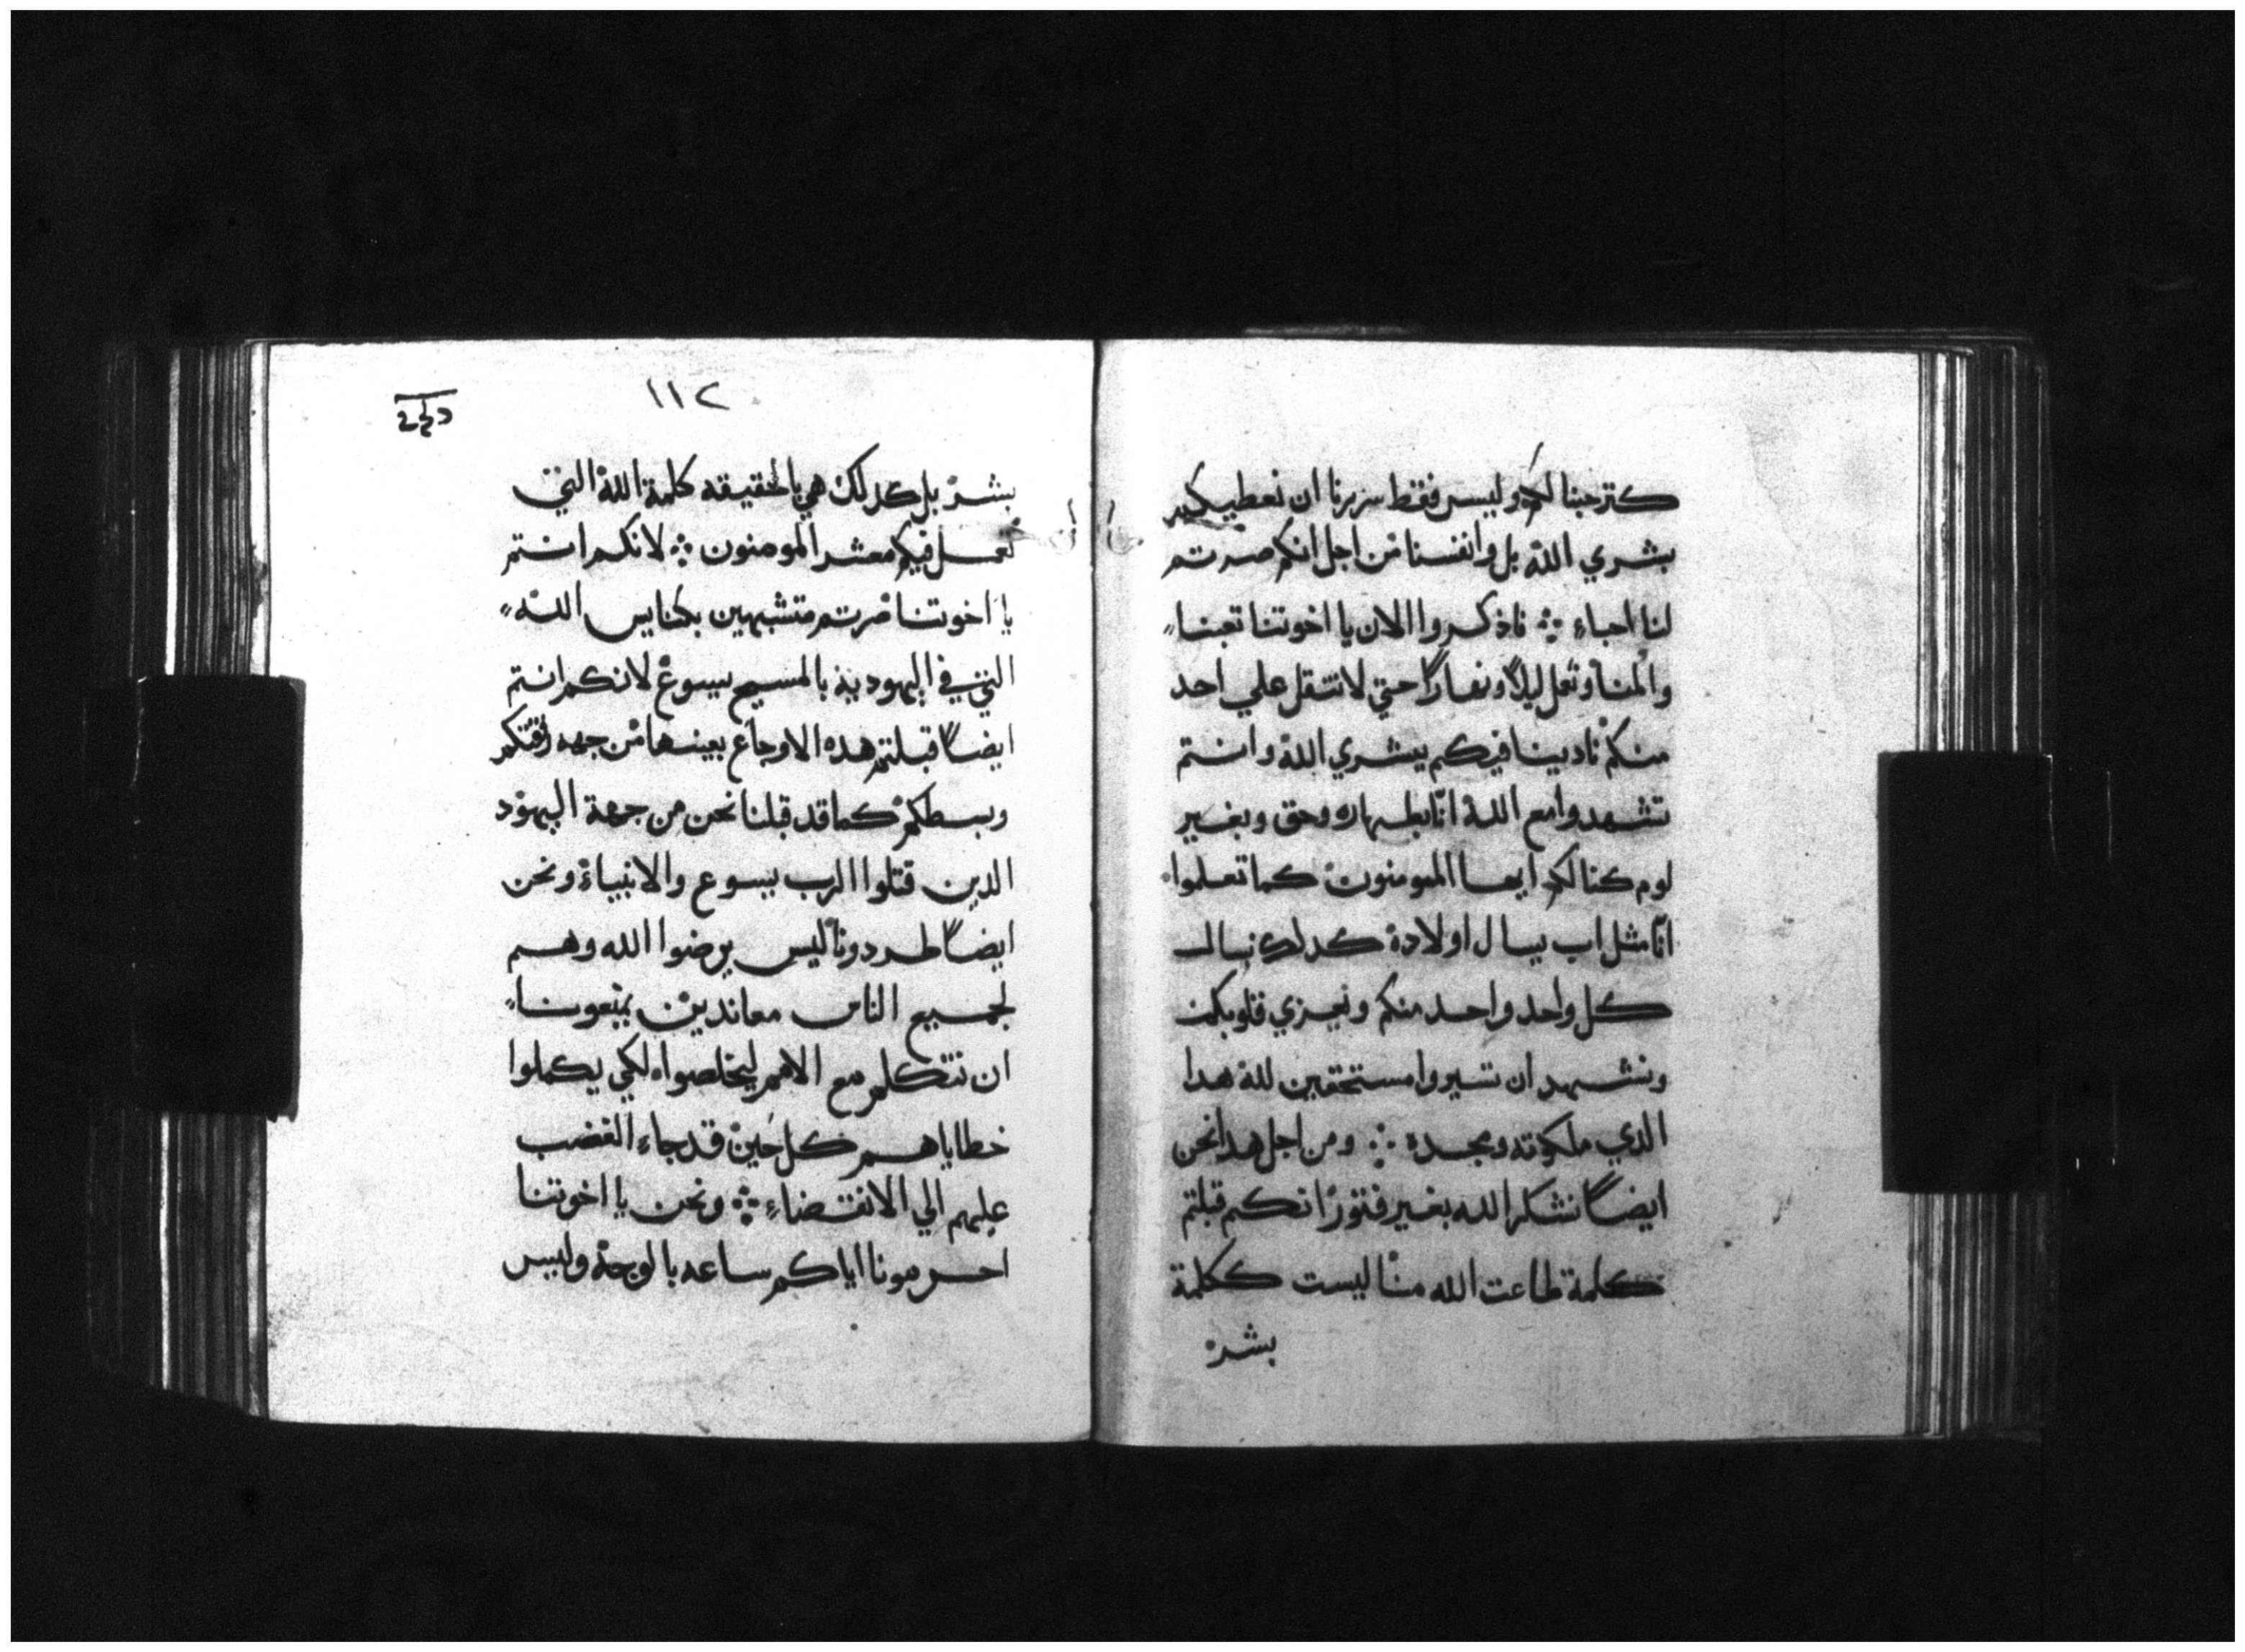 كترحبنا لكم وليس فقط سررنا ان نعطيكم
بشري الله بل وانفسنا من اجل انكم صرتم
لنا احباء ܀ فاذكروا الان يا اخوتنا تعبنا
والمنا ونعمل ليلاً ونهاراً حتي لا نتقل علي احد
منكم نادينا فيكم ببشري الله وانتم
تشهدوا مع الله انّا بطهاره وحق وبغير
لوم كنا لكم ايها المومنون كما تعلموا
انّا مثل اب يسال اولاده كدلك نسال
كل واحد واحد منكم ونعزي قلوبكم
ونشهد ان تسيروا مستحقين لله هدا
الدي ملكوته ومجده ܀ ومن اجل هدا نحن
ايضاً نشكر الله بغير فتور انكم قبلتم
كلمة طاعت الله منّا ليست ككلمة
بشر
١١٢
بشر بل كدلك هي بالحقيقه كلمة الله التي
تعمل فيكم معشر المومنون ܀ لانكم انتم
يا اخوتنا صرتم متشبهين بكنايس الله
التي في اليهودية بالمسيح يسوع لانكم انتم
ايضاً قبلتم هده الاوجاع بعينها من جهه رفقتكم
وبسطكم كما قد قبلنا نحن من جهة اليهود
الدين قتلوا الرب يسوع والانبياء ونحن
ايضاً طردونا ليس يرضوا الله وهم
لجميع الناس معاندين يمنعونا
ان نتكلم مع الامم ليخلصوا لكي يكملوا
خطاياهم كل حين قد جاء الغضب
عليهم الي الانقضاء ܀ ونحن يا اخوتنا
احرمونا اياكم ساعه بالوجه وليس